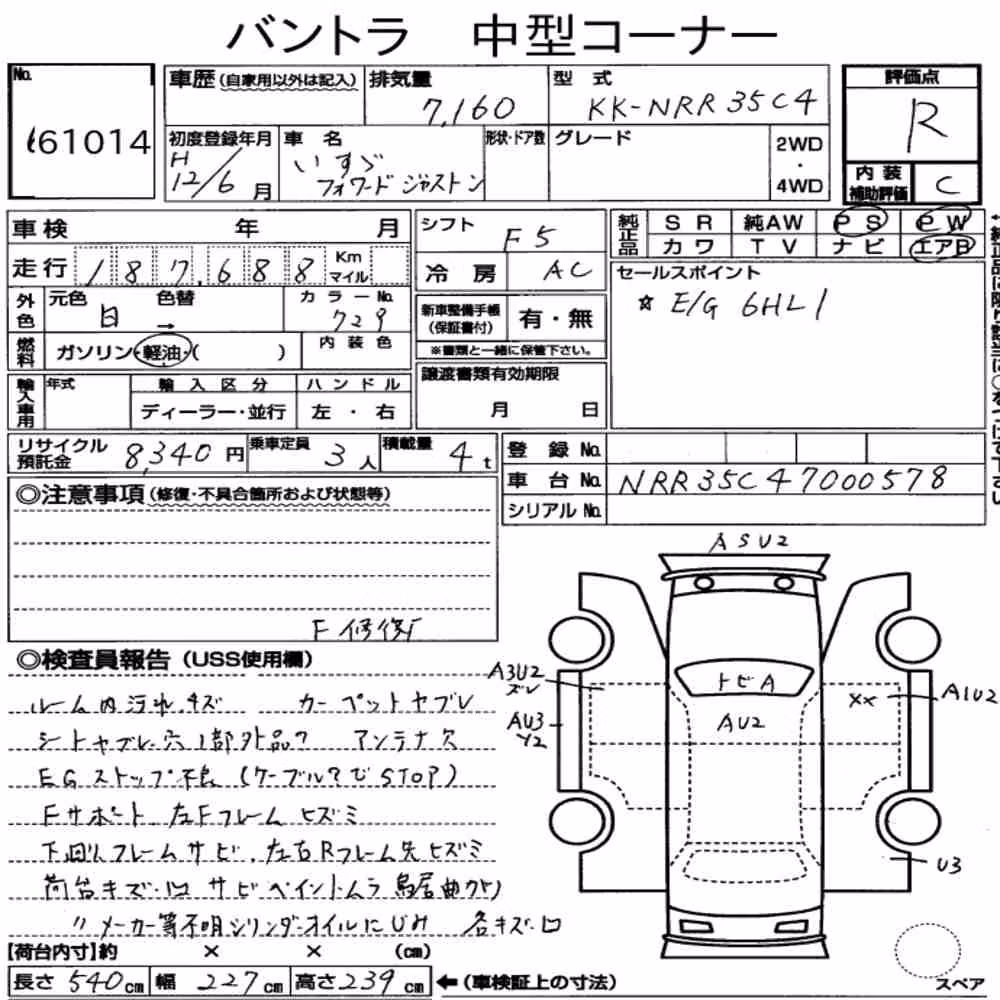 バントラ 中型コーナー
No.
61014
車歴 (自家用以外は記入)
排気量
7,160
型式
KK-NRR35C4
評価点
R
初度登録年月
H
12/6 月
車名
いすゞ
フォワードジャストン
形状・ドア数
グレード
2WD
・
4WD
内装
補助評価
C
車検 年 月
シフト
F5
純正品
SR 純AW PS PW
カワ TV ナビ エアB
走行 187,688 Km
マイル
冷房 AC
セールスポイント
☆ E/G 6HL1
外色
元色
白 →
色替
カラーNo.
729
新車整備手帳
(保証書付)
有・無
※書類と一緒に保管下さい。
燃料
ガソリン・軽油・( )
内装色
輸入車用
年式
輸入区分
ディーラー・並行
ハンドル
左・右
譲渡書類有効期限
月 日
リサイクル
預託金
8,340 円
乗車定員
3 人
積載量
4 t
登録 No.
車台 No. NRR35C47000578
シリアル No.
◎注意事項 (修復・不具合箇所および状態等)
F修復
◎検査員報告 (USS使用欄)
ルーム内汚れ、キズ カーペットヤブレ
シートヤブレ・穴 1部外品? アンテナ欠
EGストップ不良 (ケーブル?でSTOP)
Fサポート、左Fフレームヒズミ
下回りフレームサビ、左右Rフレーム先ヒズミ
荷台キズ・凹 サビペイントムラ 鳥居曲がり
〃メーカー等不明シリンダーオイルにじみ 各キズ・凹
ASU2
A3U2
ズレ
トビA
AU2
XX
A1U2
AU3
Y2
U3
スペア
[荷台内寸] 約 × × (cm)
長さ 540 cm 幅 227 cm 高さ 239 cm ←(車検証上の寸法)